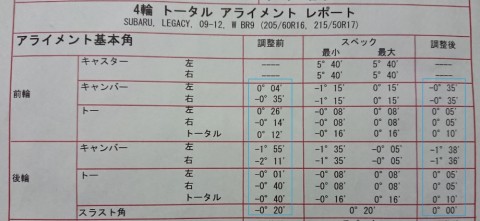 4輪 トータル アライメント レポート
SUBARU, LEGACY, 09-12, W BR9 (205/60R16, 215/50R17)
アライメント基本角 調整前 スペック 最小 最大 調整後
前輪
キャスター 左 ---- 5° 40' 5° 40' ----
右 ---- 5° 40' 5° 40' ----
キャンバー 左 0° 04' -1° 15' 0° 15' -0° 35'
右 -0° 35' -1° 15' 0° 15' -0° 35'
トー 左 0° 26' -0° 08' 0° 08' 0° 05'
右 -0° 14' -0° 08' 0° 08' 0° 05'
トータル 0° 12' -0° 16' 0° 16' 0° 10'
後輪
キャンバー 左 -1° 55' -1° 35' -0° 05' -1° 38'
右 -2° 11' -1° 35' -0° 05' -1° 36'
トー 左 -0° 01' -0° 08' 0° 08' 0° 05'
右 -0° 40' -0° 08' 0° 08' 0° 05'
トータル -0° 40' -0° 16' 0° 16' 0° 10'
スラスト角 -0° 20' 0° 20' 0° 00'